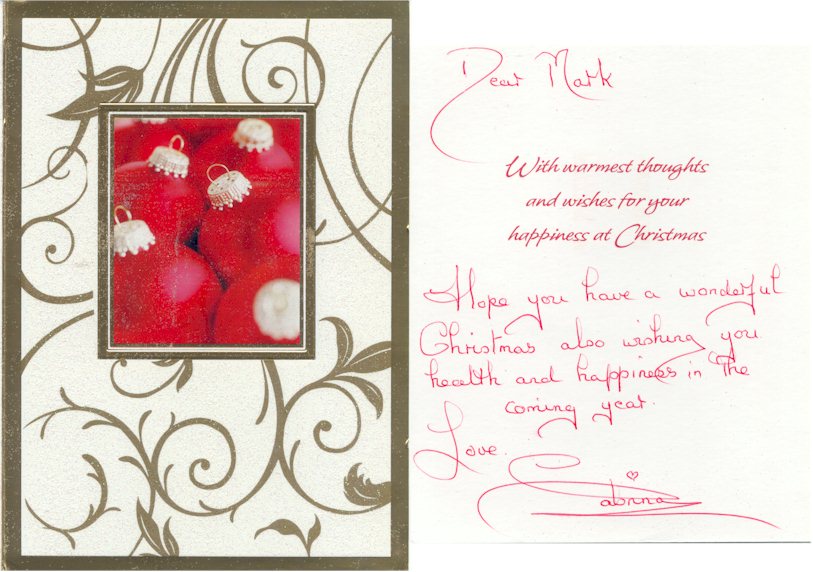 Dear Mark
With warmest thoughts
and wishes for your
happiness at Christmas
Hope you have a wonderful
Christmas also wishing you
health and happiness in The
coming year.
Love.
Sabrina